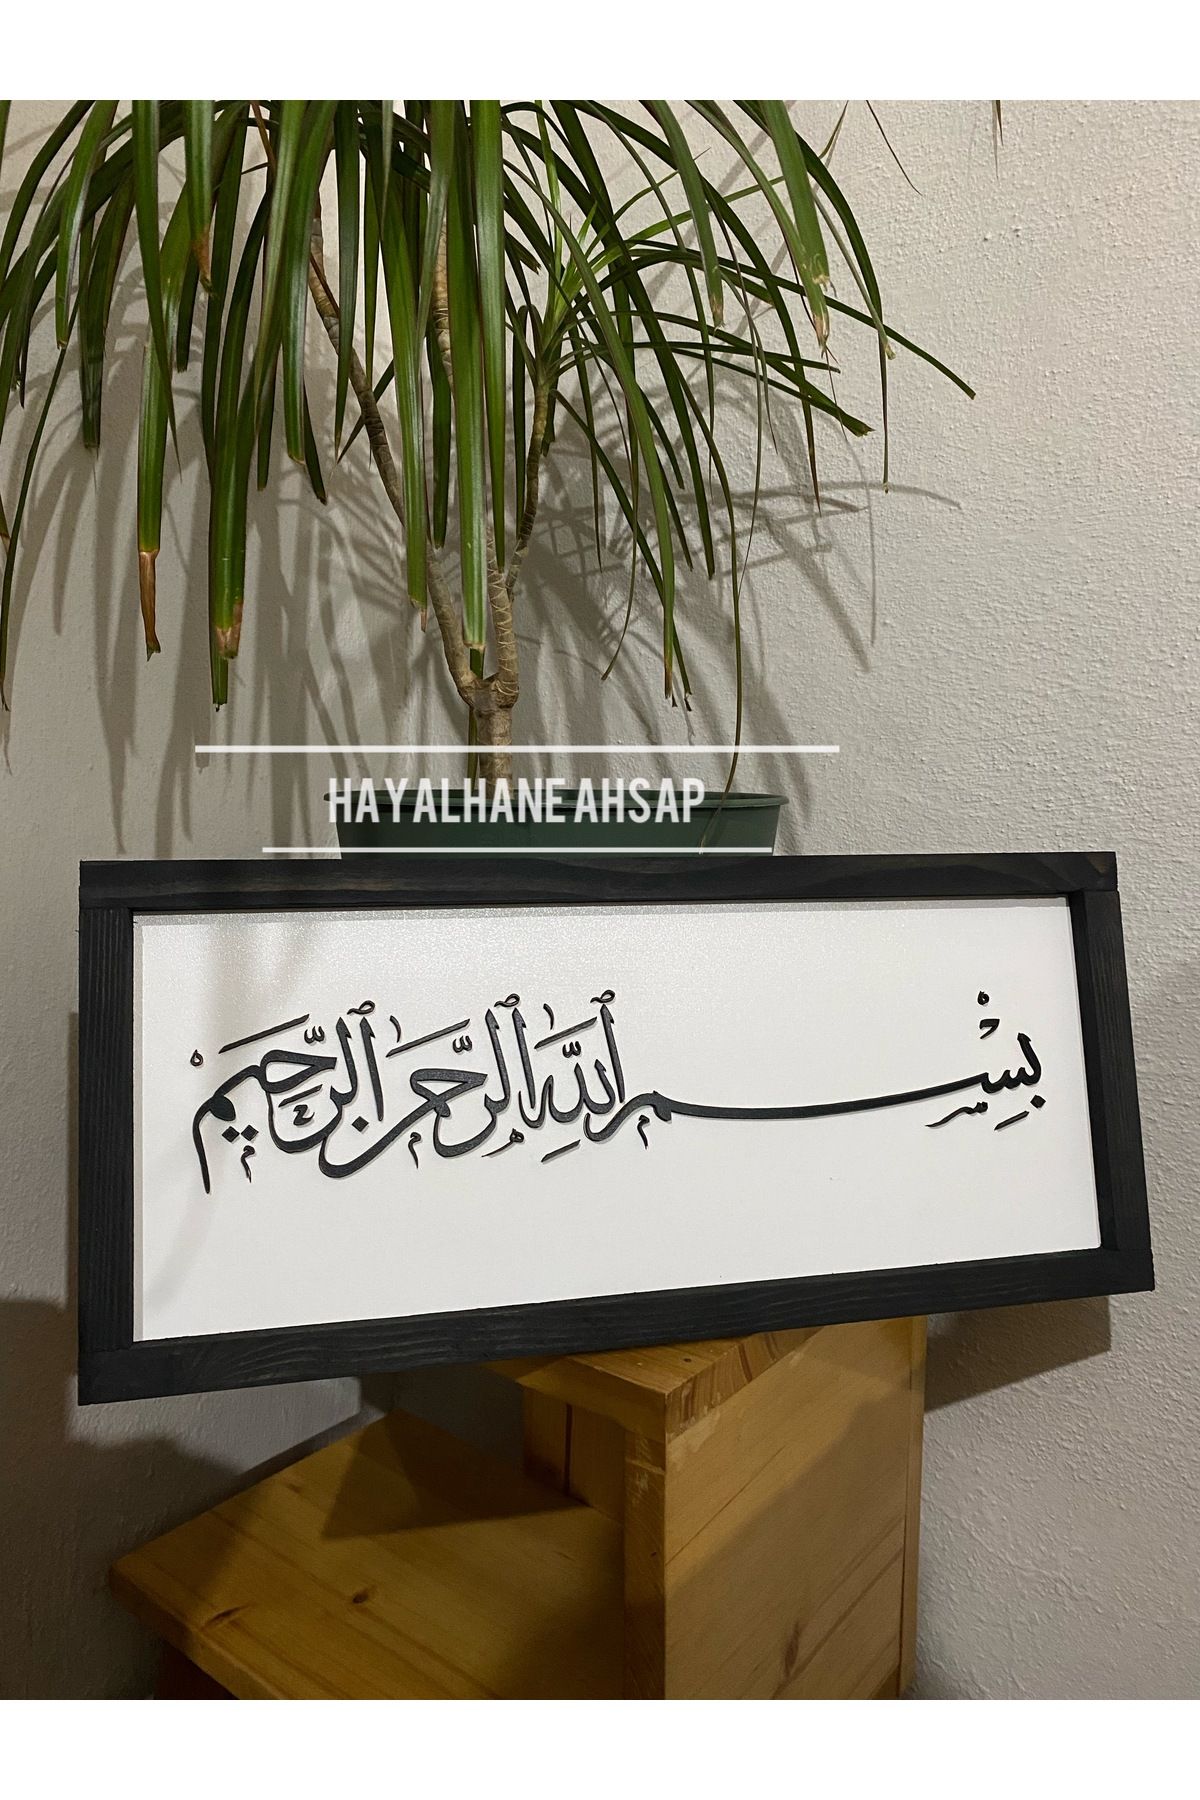 HAYALHANE AHSAP
بِسْمِ ٱللَّهِ ٱلرَّحْمَٰنِ ٱلرَّحِيمِ